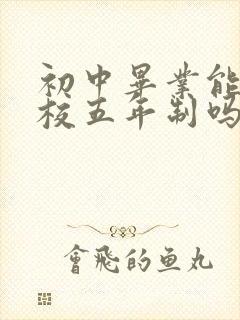 初中畢業能
校五年制吗
會飛的鱼丸